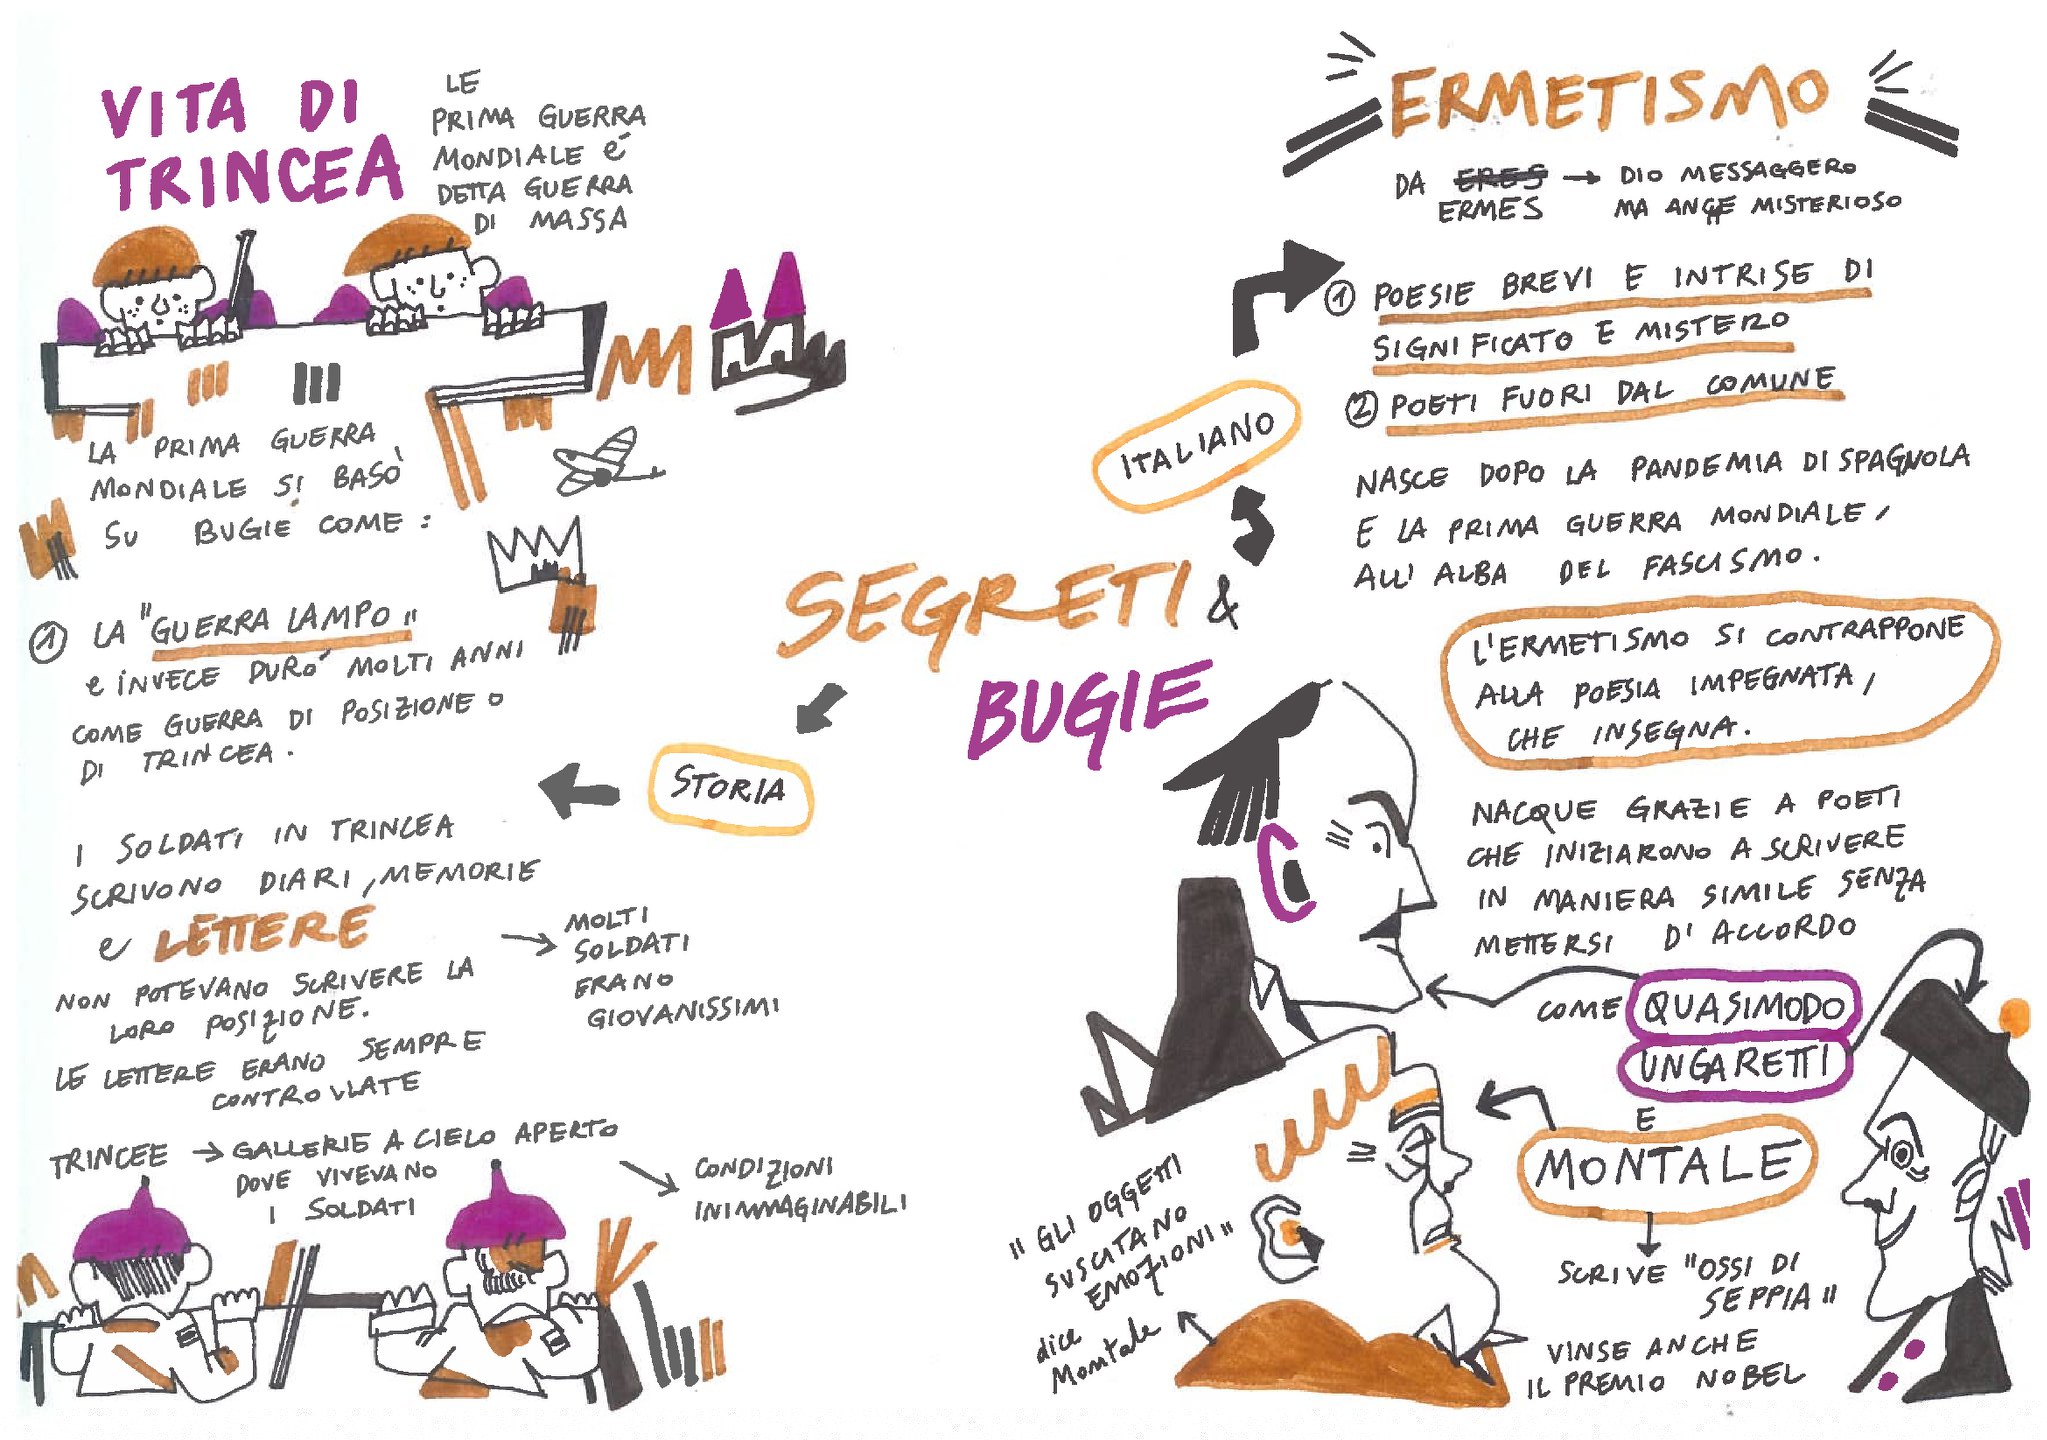 VITA DI
TRINCEA
LE
PRIMA GUERRA
MONDIALE é
DETTA GUERRA
DI MASSA
LA PRIMA GUERRA
MONDIALE SI BASÒ
SU BUGIE COME:
① LA "GUERRA LAMPO"
e INVECE DURÒ MOLTI ANNI
COME GUERRA DI POSIZIONE O
DI TRINCEA.
I SOLDATI IN TRINCEA
SCRIVONO DIARI, MEMORIE
e LETTERE
MOLTI
SOLDATI
ERANO
GIOVANISSIMI
NON POTEVANO SCRIVERE LA
LORO POSIZIONE.
LE LETTERE ERANO SEMPRE
CONTROLLATE
TRINCEE → GALLERIE A CIELO APERTO
DOVE VIVEVANO
I SOLDATI
CONDIZIONI
INIMMAGINABILI
SEGRETI &
BUGIE
STORIA
ITALIANO
ERMETISMO
DA ERES → DIO MESSAGGERO
ERMES MA ANCHE MISTERIOSO
① POESIE BREVI E INTRISE DI
SIGNIFICATO E MISTERO
② POETI FUORI DAL COMUNE
NASCE DOPO LA PANDEMIA DI SPAGNOLA
E LA PRIMA GUERRA MONDIALE,
ALL'ALBA DEL FASCISMO.
L'ERMETISMO SI CONTRAPPONE
ALLA POESIA IMPEGNATA,
CHE INSEGNA.
NACQUE GRAZIE A POETI
CHE INIZIARONO A SCRIVERE
IN MANIERA SIMILE SENZA
METTERSI D'ACCORDO
COME QUASIMODO
UNGARETTI
E
MONTALE
SCRIVE "OSSI DI
SEPPIA"
VINSE ANCHE
IL PREMIO NOBEL
"GLI OGGETTI
SUSCITANO
EMOZIONI"
dice
Montale